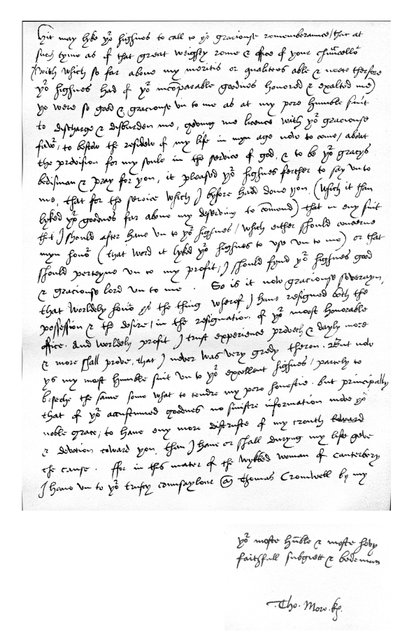 Hit may lyke yor highnes to call to yor graciouse remembraunce / that at
such tyme as of that great weighty rome & office of your chauncellor
(with which so far above my meritis or qualitees able & mete therfore
yor highnes had of yor incomparable goodnes honored & exalted me)
ye were so good & graciouse vn to me as at my pore humble suit
to discharge & disburden me, geving me licence with yor graciouse
favor, to bestow the residew of my life in myn age now to come, about
the provision for my soule in the service of god, & to be yor gracys
bedisman & pray for you, it pleased yor highnes ferther to say vn to
me, that for the service which I byfore had done you (which it than
lyked yor goodnes far above my deserving to commend) that in eny suit
that I should after haue vn to yor highnes / which either should concerne
myn honor (that word it lyked yor highnes to vse vn to me) or that
should perteyne vn to my profit / I should fynd yor highnes good
& graciouse lord vn to me. So is it now graciouse soverayn,
that worldely honor ys the thing wherof I haue resigned both the
possession & the desire / in the resignation of yor moost honorable
office. And worldely profit, I trust experience proveth & dayly more
& more shall prove, that I never was very gredy theron. But now
ys my most humble suit vn to yor excellent highnes / partely to
bisech the same some what to tendre my pore honestie. but principally
that of yor accustumed goodnes no sinistre information move yor
noble grace, to haue eny more distruste of my trouth
& devotion toward you, than I haue or shall during my life geve
the cause. ffor in this mater of the wykked woman of canterbery
I haue vn to yor trusty counsaylour Thomas Cromwell by my
yor moste humble & moste hevy
faithfull subgiett & bedeman
Tho. More. kg.